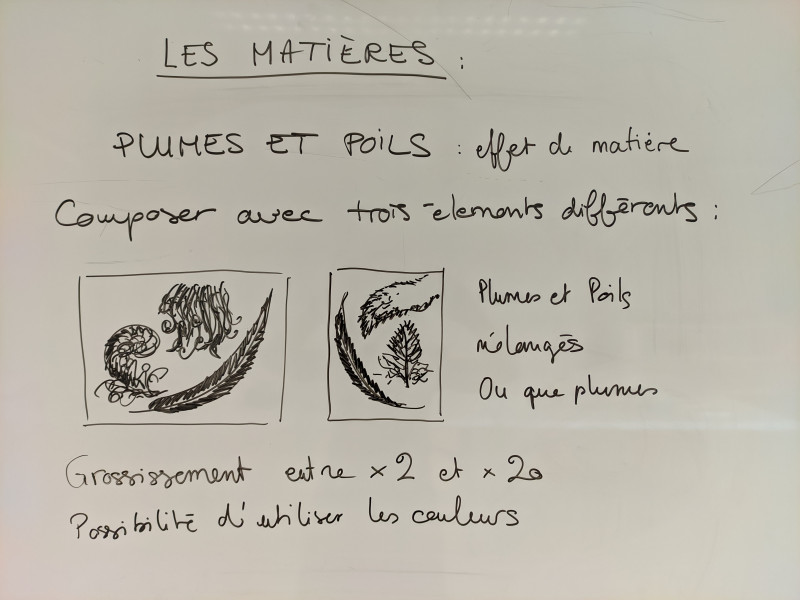 LES MATIÈRES :
PLUMES ET POiLS : effet de matière
Composer avec trois elements différents :
Plumes et Poils
mélangés
Ou que plumes
Grossissement entre × 2 et × 20
Possibilité d'utiliser les couleurs